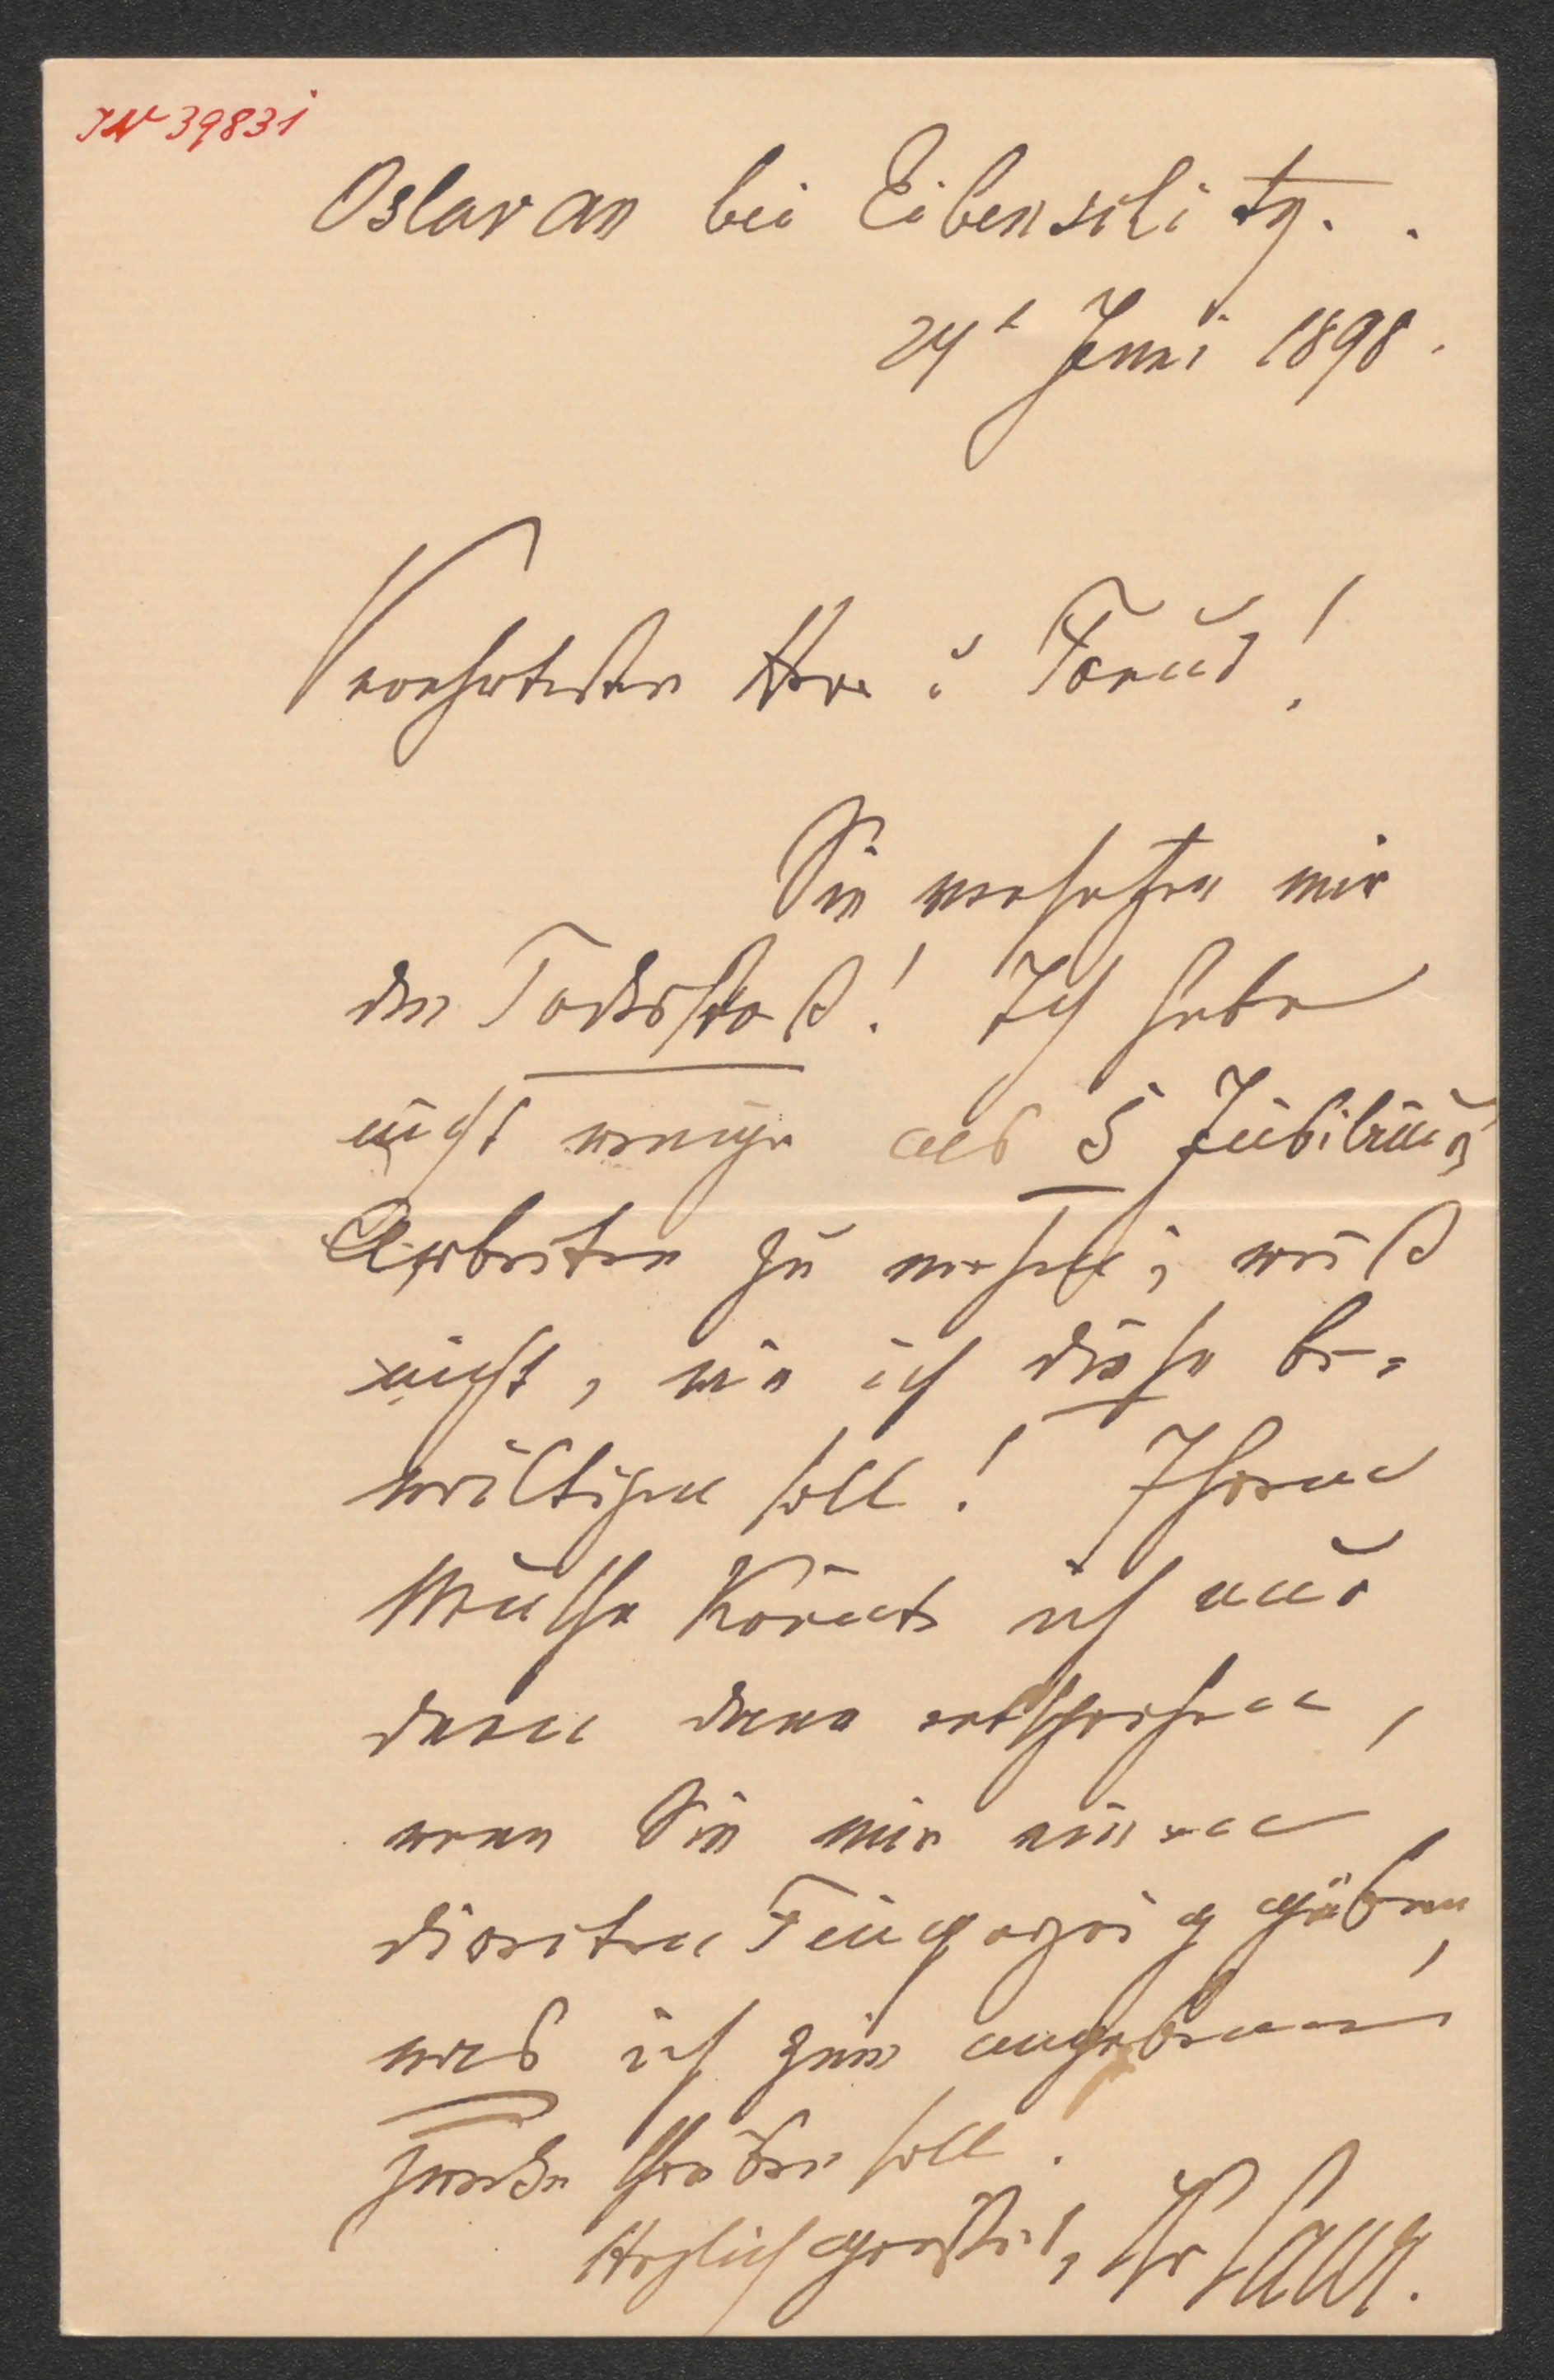 IN 39831
Oslavan bei Eibenschitz.
24t Juni 1898.
Verehrtester Herr u Freund!
Sie versetzen mir
den Todesstoß! Ich habe
nicht weniger als 5 Jubiläums
Arbeiten zu machen; weiß
nicht, wie ich diese be-
wältigen soll! Ihrem
Wunsche könnte ich nur
dann dann entsprechen,
wenn Sie mir einen
directen Fingerzeig gäben,
was ich zum angegebenen
Zwecke schreiben soll.
Herzlich grüßend, Ihr Saar.